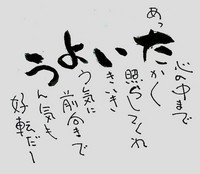 あったかく
心の中まで
照らしてくれ
いきいき
よう気に
前向きで
うん気も
好転だー